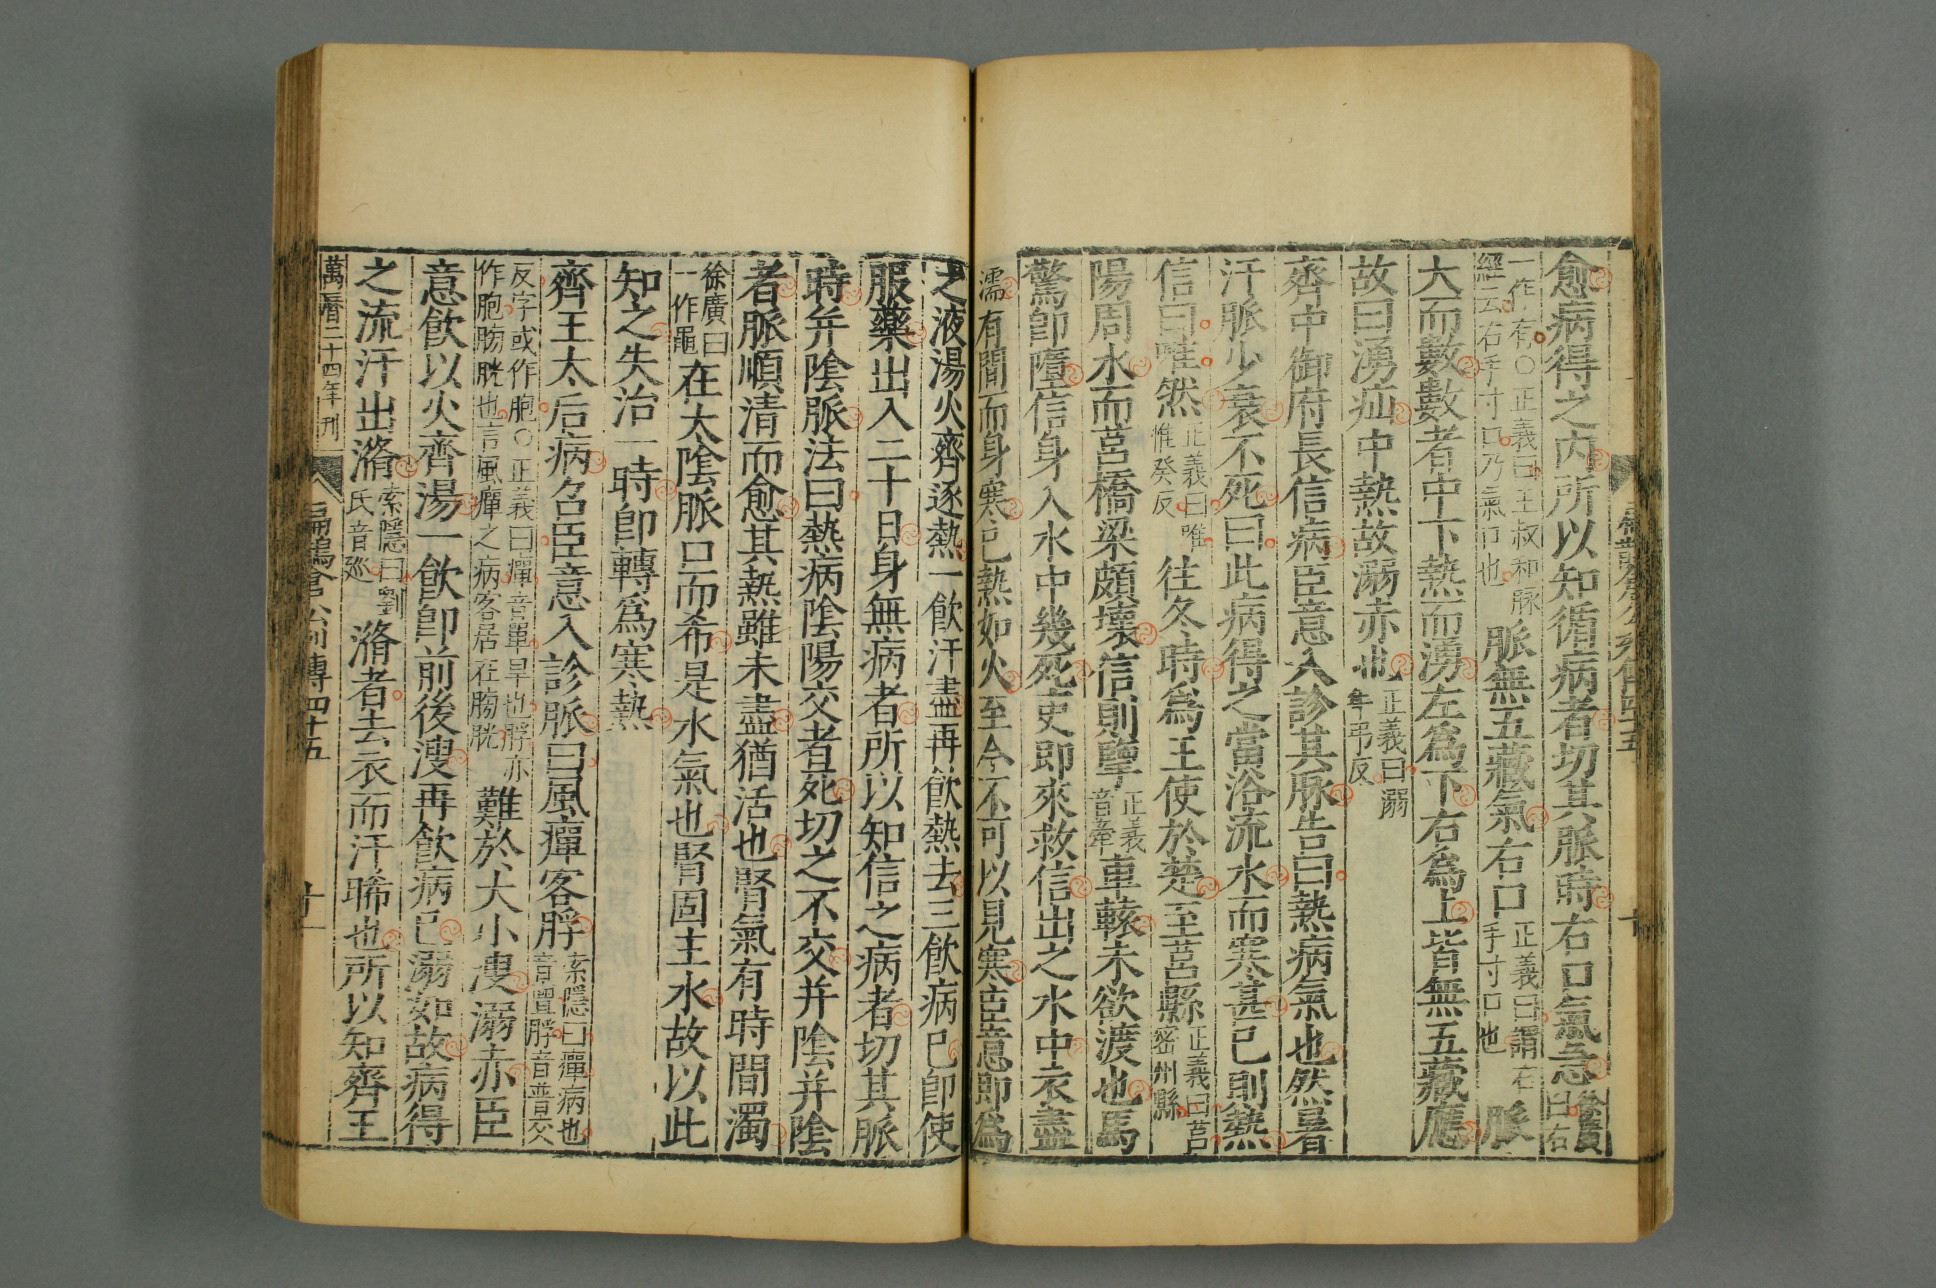 愈病得之内所以知循病者切其脈時右口氣急徐廣曰右
一作有○正義曰王叔和脈經云右手寸口乃氣口也脈無五藏氣右口正義曰謂右手寸口也脈
大而數數者中下熱而湧左爲下右爲上皆無五藏應
故曰湧疝中熱故溺赤也正義曰溺年弔反
齊中御府長信病臣意入診其脈告曰熱病氣也然暑
汗脈少衰不死曰此病得之當浴流水而寒甚已則熱
信曰唯然正義曰唯惟癸反往冬時爲王使於楚至莒縣正義曰莒密州縣
陽周水而莒橋梁頗壞信則擥正義音牽車轅未欲渡也馬
驚卽墮信身入水中幾死吏即來救信出之水中衣盡
濡有間而身寒已熱如火至今不可以見寒臣意即爲
之液湯火齊逐熱一飲汗盡再飲熱去三飲病已卽使
服藥出入二十日身無病者所以知信之病者切其脈
時并陰脈法曰熱病陰陽交者死切之不交并陰并陰
者脈順清而愈其熱雖未盡猶活也腎氣有時間濁
徐廣曰一作黽在大陰脈口而希是水氣也腎固主水故以此
知之失治一時卽轉爲寒熱
齊王太后病召臣意入診脈曰風癉客脬索隱曰癉病也音亶脬音普交
反字或作胞○正義曰癉音單旱也脬亦作胞膀胱也言風癉之病客居在膀胱難於大小溲溺赤臣
意飲以火齊湯一飲卽前後溲再飲病已溺如故病得
之流汗出㵌索隱曰劉氏音巡㵌者去衣而汗晞也所以知齊王
萬曆二十四年刊
扁鵲倉公列傳四十五
十一